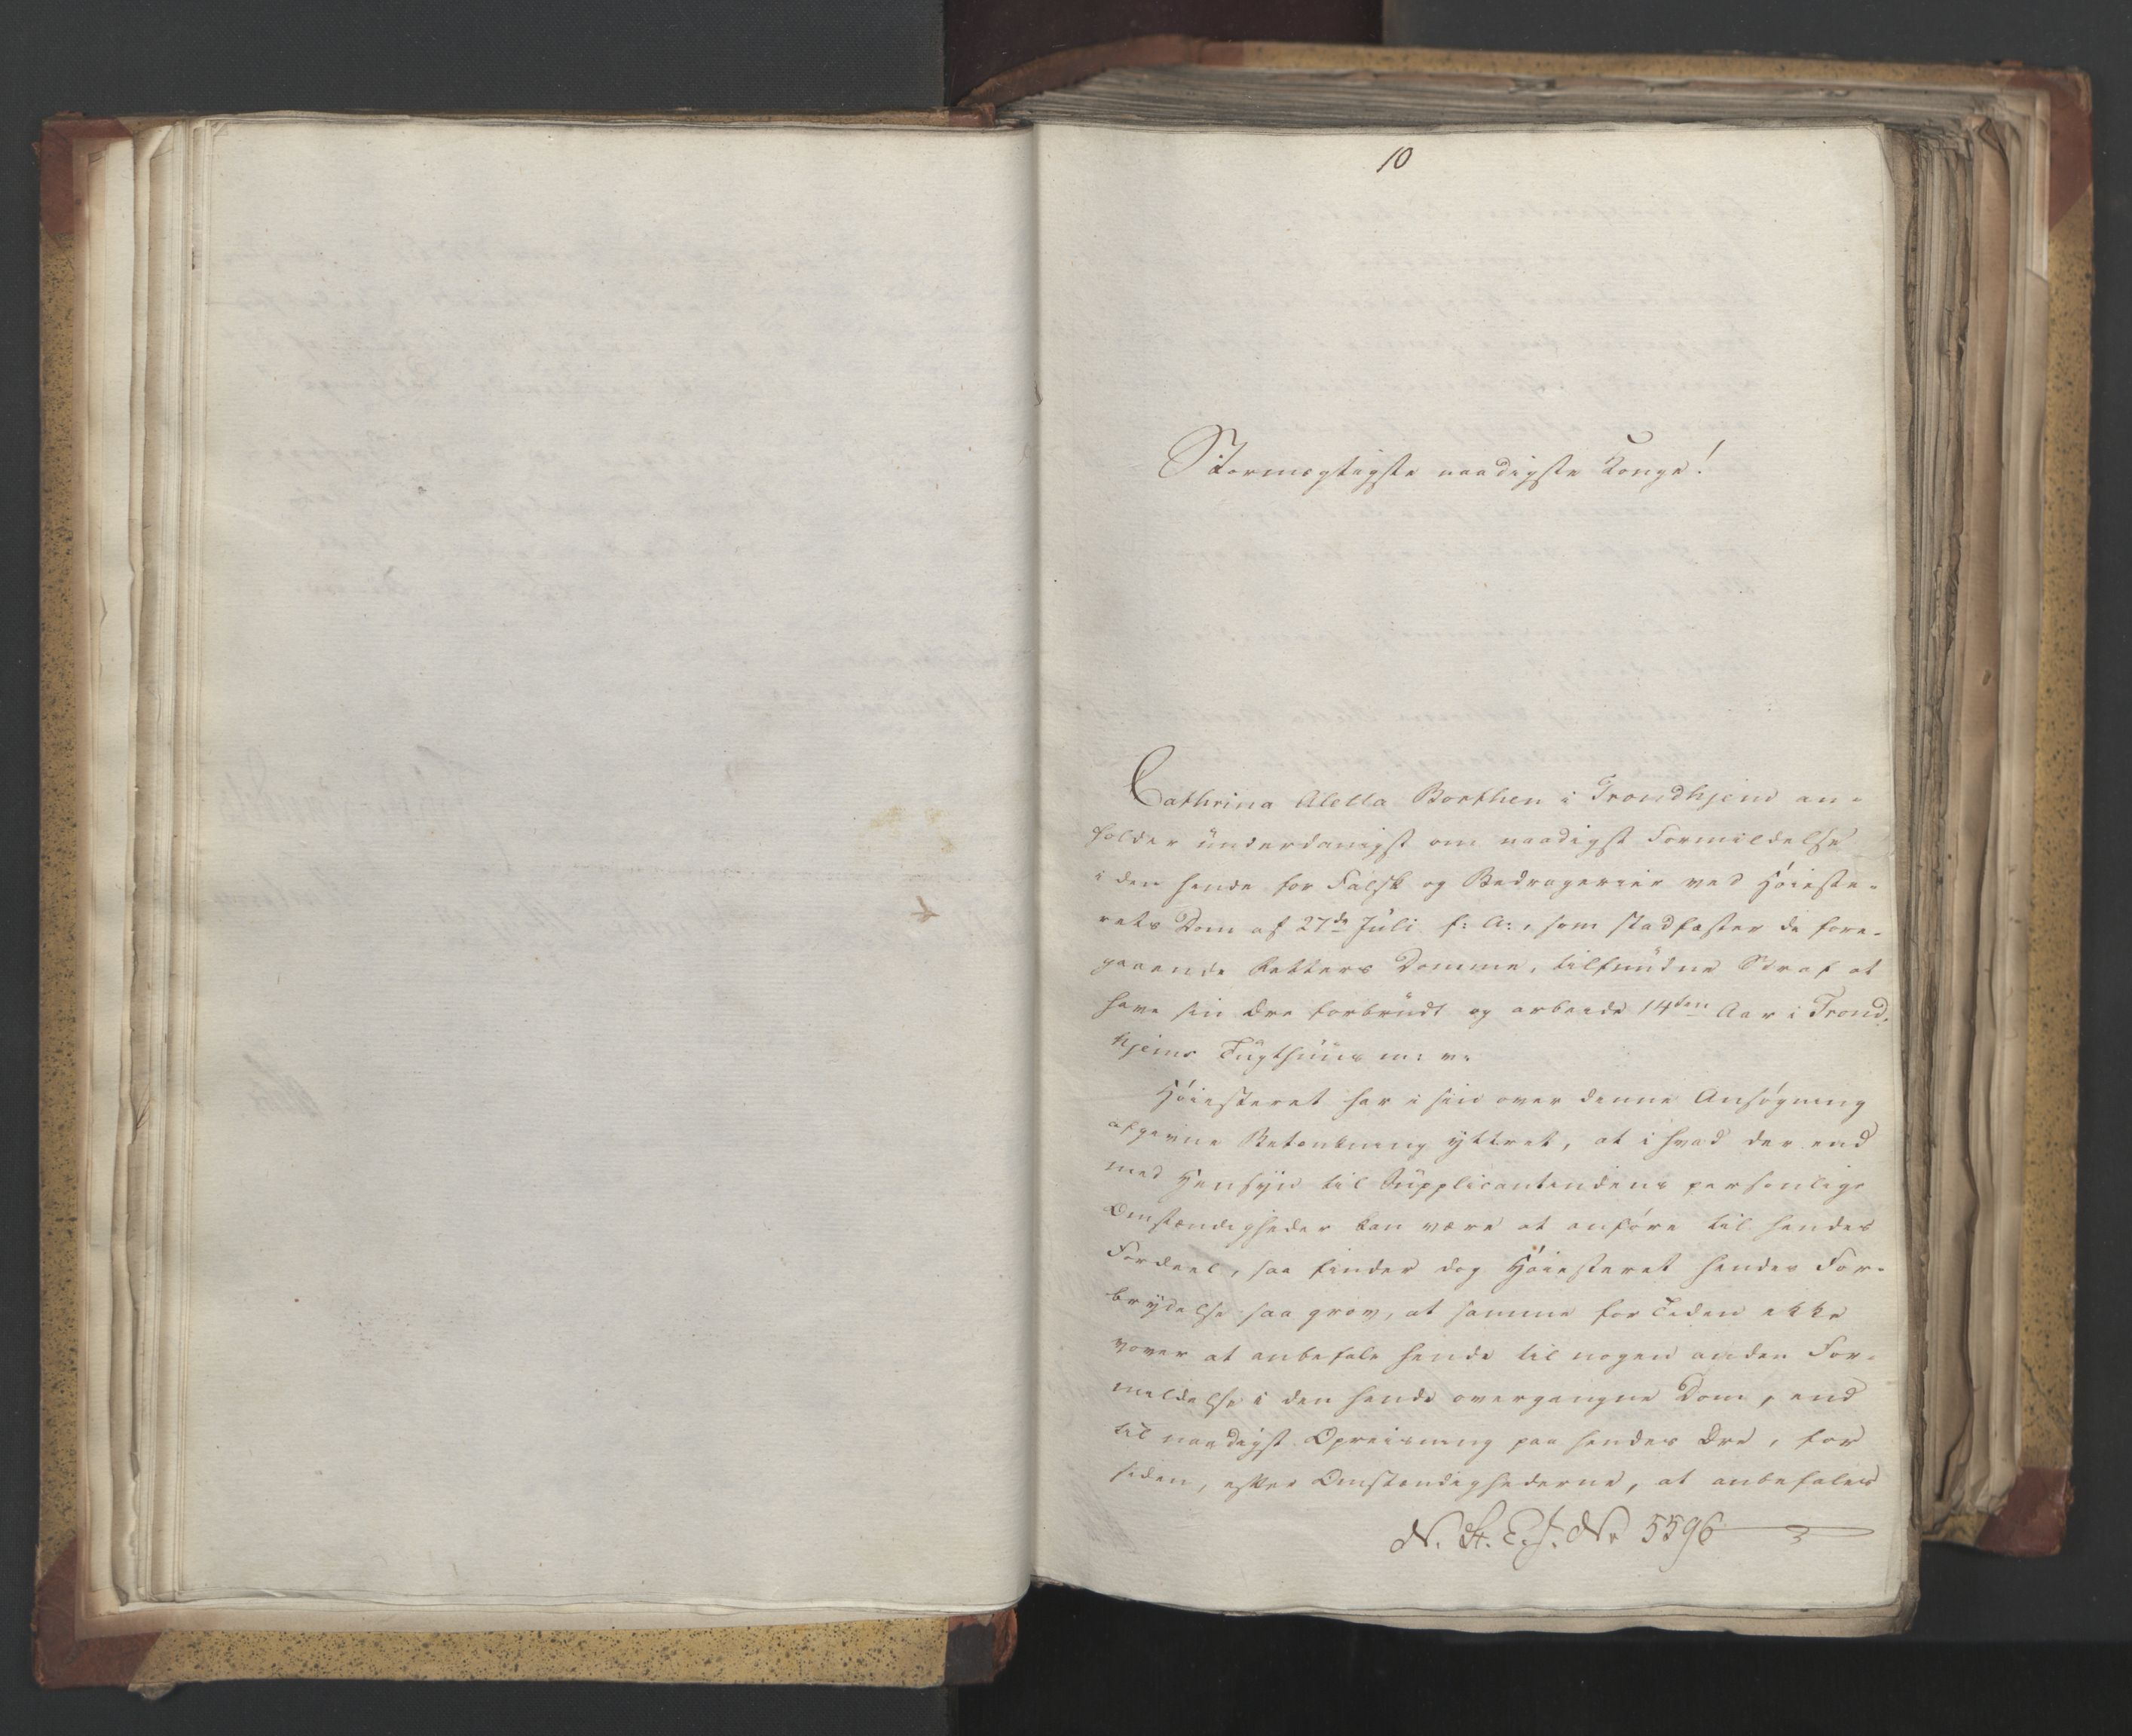 10
Stormægtigste naadigste Konge!
Cathrina Aletta Borthen i Trondhjem an-
holder ünderdanigst om naadigst Formildelse
i den hende for Falsk og Bedragerier ved Høieste-
rets Dom af 27de Juli f: A:, som stadfæster de fore-
gaaende Retters Domme, tilfundne Straf at
have sin Ære forbrudt og arbeide 14ten Aar i Trond-
hjems Tugthuus m: v:
Høiesteret har i sin over denne Ansøgning
afgivne Betænkning yttret, at i hvad der end
med Hensyn til Supplicantindens personlige
Omstændigheder kan være at anføre til hendes
Fordeel, saa finder dog Høiesteret hendes For-
brydelse saa grov, at samme for Tiden ikke
vover at anbefale hende til nogen anden For-
mildelse i den hende overgangne Dom, end
til naadigst Opreisning paa hendes Ære, for
siden, efter Omstændighederne, at anbefales
N. St. E. J. No 5596